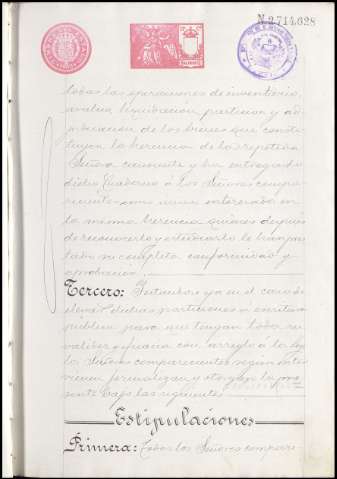 N.2.714,628
todas las operaciones de inventario,
avaluo liquidación particion y ad-
judicacion de los bienes que consti-
tuyen la herencia de la repetida
Señora causante y han entregado
dicho Cuaderno á los Señores compa-
recientes como unicos interesados en
la misma herencia quienes después
de reconocerlo y estudiarlo le han pres-
tado su completa conformidad y
aprobación.
Tercero: y en el caso de
elevar dichas particiones a escritura
pública para que tengan toda su
validez y eficacia con arreglo á la ley
los Señores comparecientes según inter-
vienen formalizan y otorgan la pre-
sente bajo las siguientes
Estipulaciones
Primera: Todos los Señores compare-